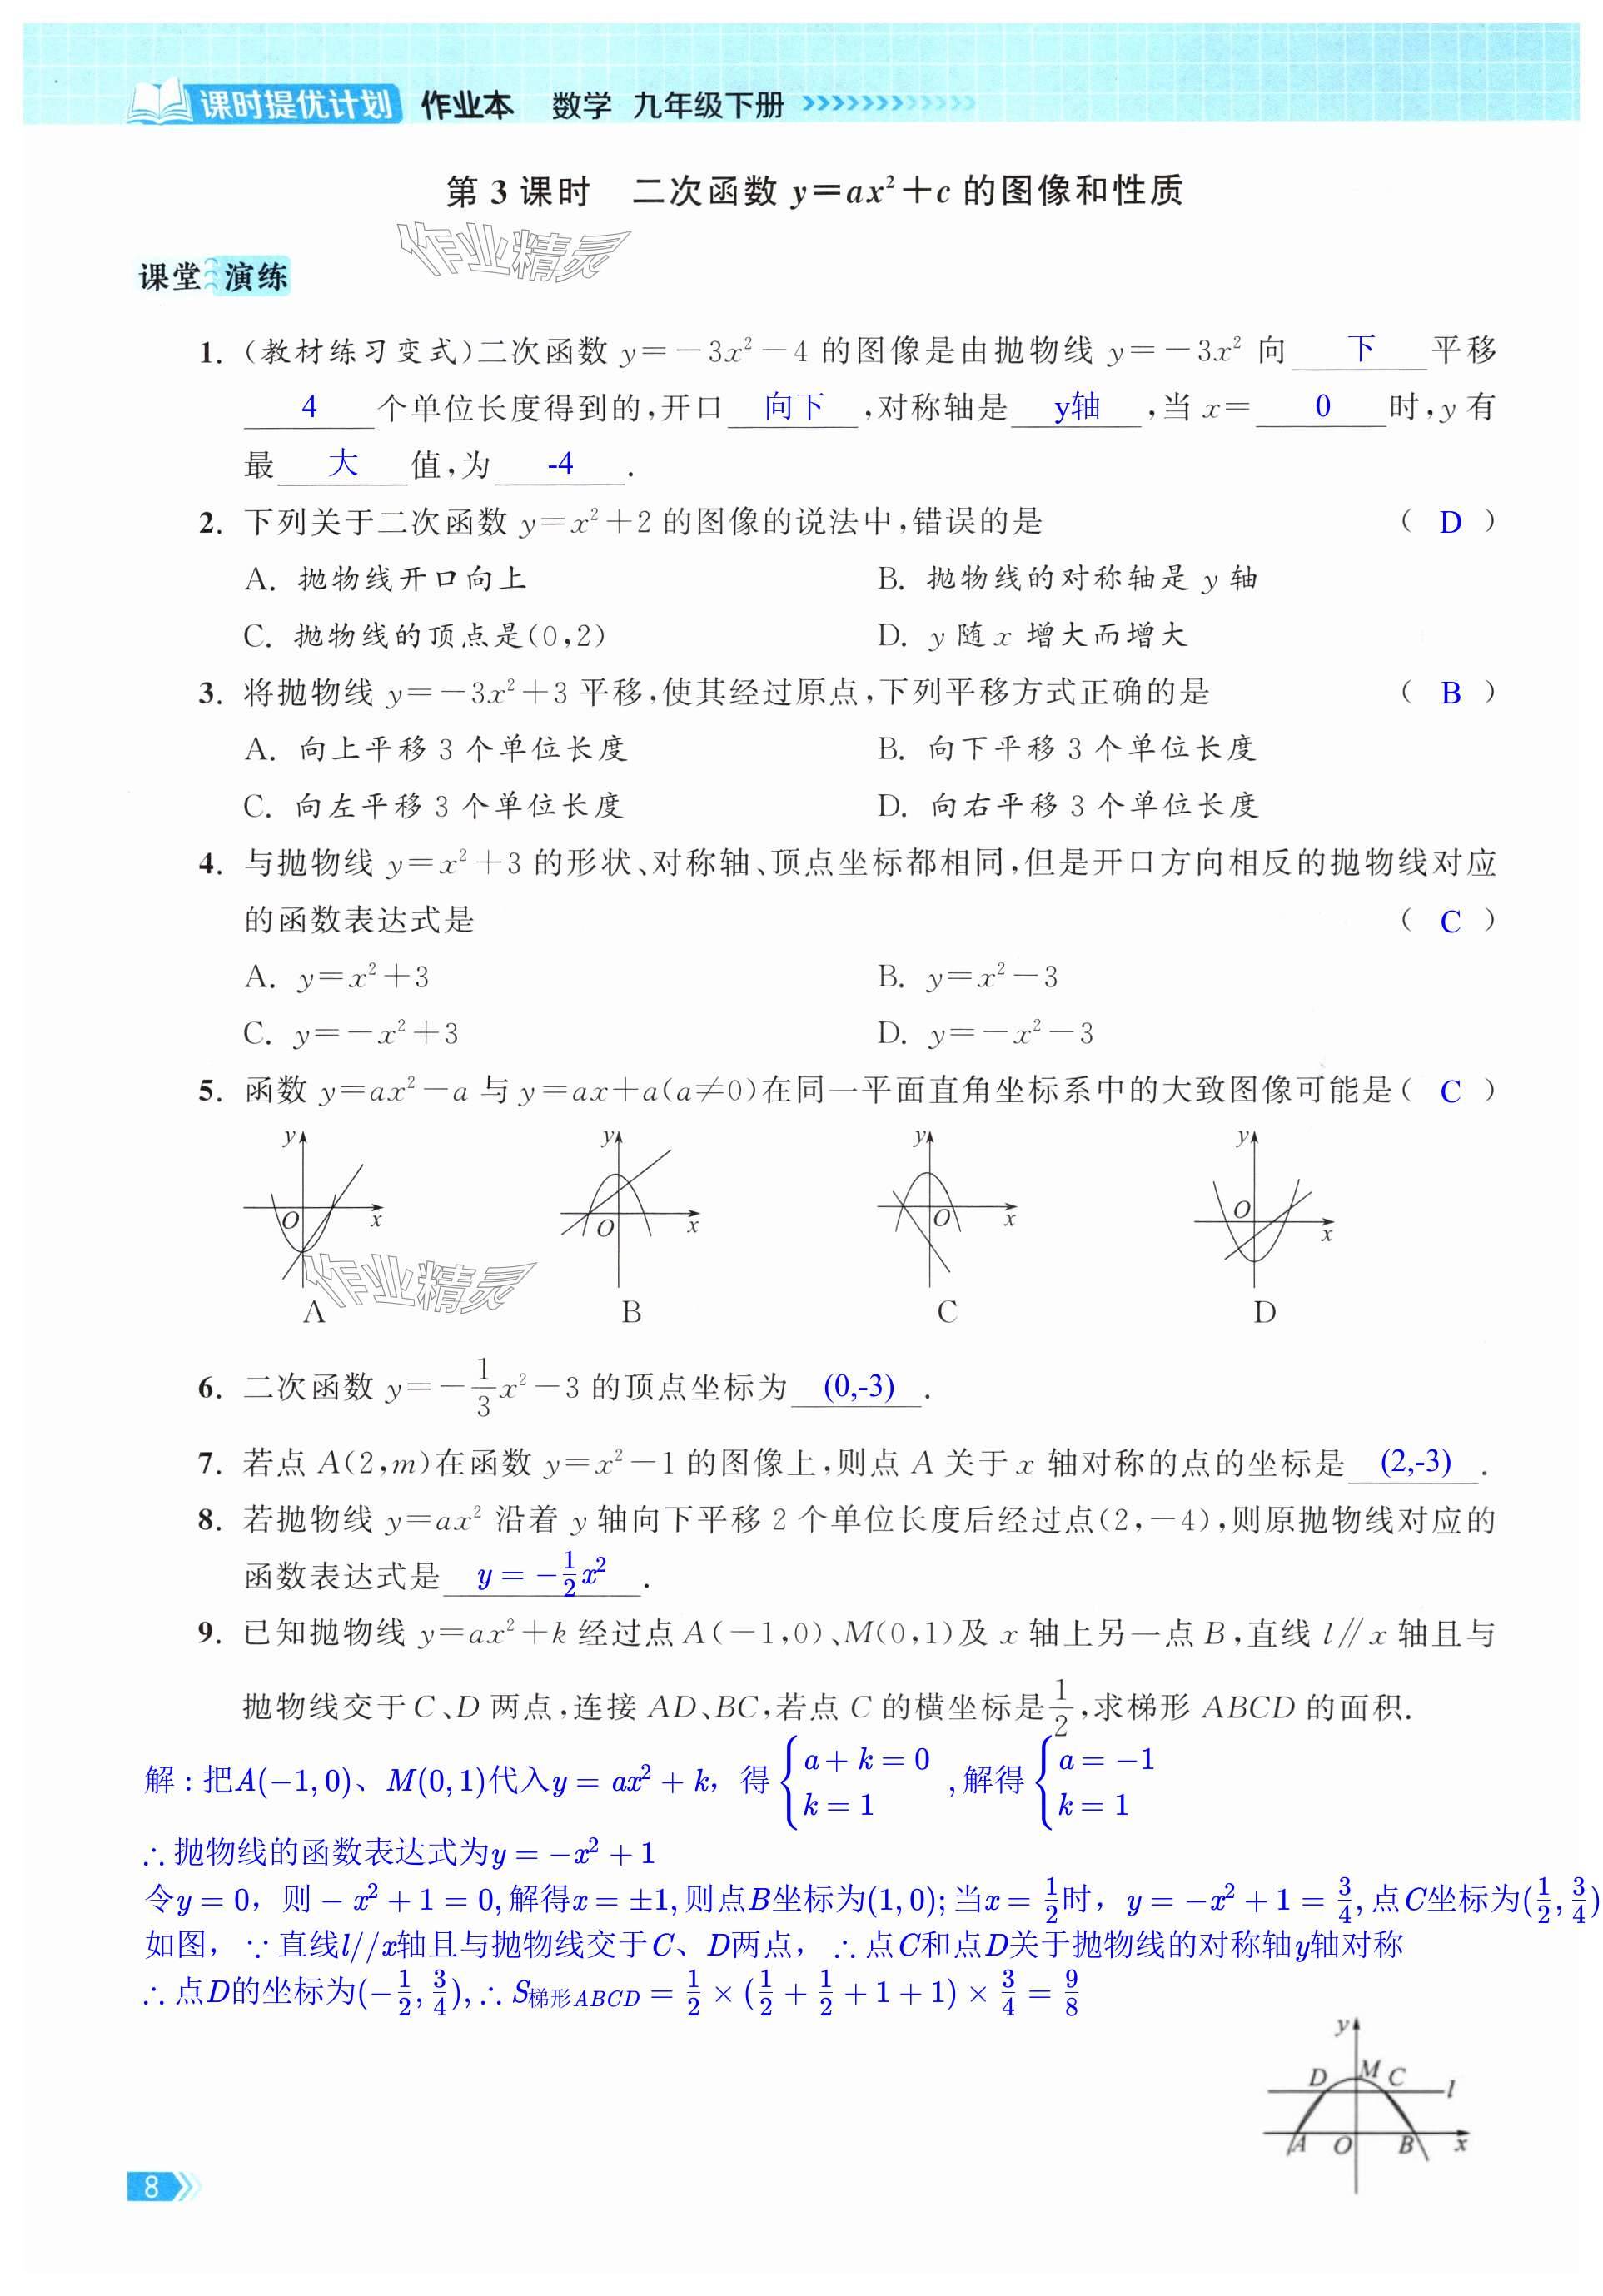 课时提优计划 作业本 数学 九年级下册
第 3 课时 二次函数 y=ax²+c 的图像和性质
作业精灵
课堂 演练
1. (教材练习变式)二次函数 y=-3x²-4 的图像是由抛物线 y=-3x² 向 下 平移
4 个单位长度得到的,开口 向下 ,对称轴是 y轴 ,当 x= 0 时,y 有
最 大 值,为 -4 .
2. 下列关于二次函数 y=x²+2 的图像的说法中,错误的是 ( D )
A. 抛物线开口向上 B. 抛物线的对称轴是 y 轴
C. 抛物线的顶点是(0,2) D. y 随 x 增大而增大
3. 将抛物线 y=-3x²+3 平移,使其经过原点,下列平移方式正确的是 ( B )
A. 向上平移 3 个单位长度 B. 向下平移 3 个单位长度
C. 向左平移 3 个单位长度 D. 向右平移 3 个单位长度
4. 与抛物线 y=x²+3 的形状、对称轴、顶点坐标都相同,但是开口方向相反的抛物线对应
的函数表达式是 ( C )
A. y=x²+3 B. y=x²-3
C. y=-x²+3 D. y=-x²-3
5. 函数 y=ax²-a 与 y=ax+a(a≠0)在同一平面直角坐标系中的大致图像可能是( C )
y y y y
O x O x O x O x
作业精灵
A B C D
6. 二次函数 y=-1/3x²-3 的顶点坐标为 (0,-3) .
7. 若点 A(2,m)在函数 y=x²-1 的图像上,则点 A 关于 x 轴对称的点的坐标是 (2,-3) .
8. 若抛物线 y=ax² 沿着 y 轴向下平移 2 个单位长度后经过点(2,-4),则原抛物线对应的
函数表达式是 y=-1/2x² .
9. 已知抛物线 y=ax²+k 经过点 A(-1,0)、M(0,1)及 x 轴上另一点 B,直线 l∥x 轴且与
抛物线交于 C、D 两点,连接 AD、BC,若点 C 的横坐标是1/2,求梯形 ABCD 的面积.
解:把A(-1,0)、M(0,1)代入y=ax²+k,得{a+k=0 k=1 ,解得{a=-1 k=1
∴抛物线的函数表达式为y=-x²+1
令y=0,则-x²+1=0,解得x=±1,则点B坐标为(1,0);当x=1/2时,y=-x²+1=3/4,点C坐标为(1/2,3/4)
如图,∵直线l//x轴且与抛物线交于C、D两点,∴点C和点D关于抛物线的对称轴y轴对称
∴点D的坐标为(-1/2,3/4),∴S梯形ABCD=1/2×(1/2+1/2+1+1)×3/4=9/8
y
D M C l
A O B x
8